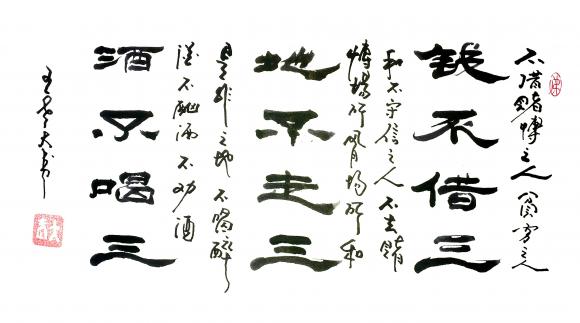 不借赌博之人 之人
钱不借三
和不守信之人 不去赌
博场所 风月场所 和
地不走三
是非之地 不喝醉
酒 不酗酒 不劝酒
酒不喝三